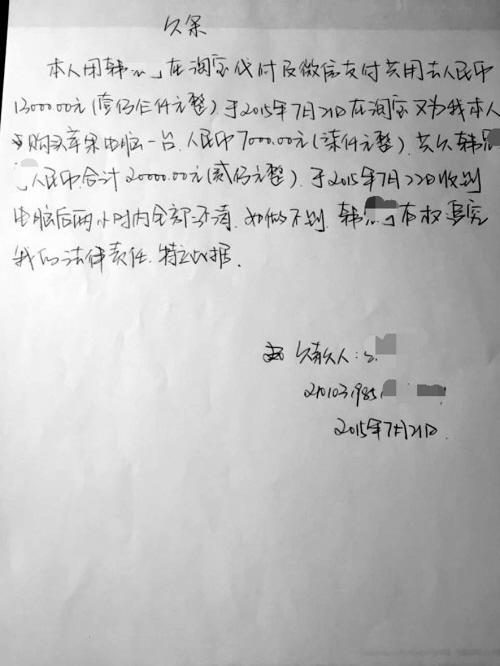 欠条
本人用韩 在淘宝代付及微信支付共用去人民币
13000.00元(壹仟叁仟元整).于2015年7月21日在淘宝又为我本人
购买苹果电脑一台.人民币7000.00元(柒仟元整).共欠韩
人民币合计20000.00元(贰仟元整).于2015年7月22日收到
电脑后两小时内全部还清.如做不到.韩 有权追究
我的法律责任.特立此据.
欠款人:
2101031985
2015年7月21日